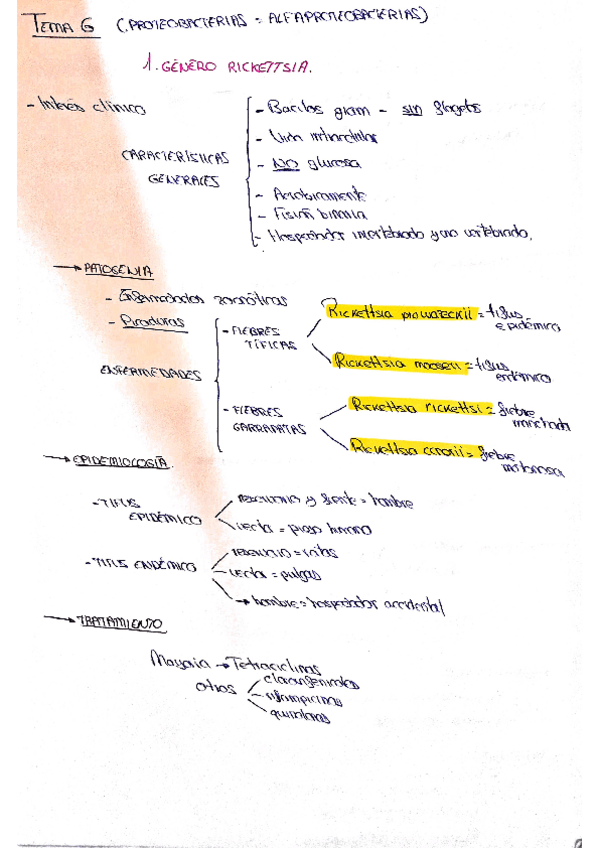 TEMA 6 (PROTEOBACTERIAS = ALFAPROTEOBACTERIAS)
1. GÉNERO RICKETTSIA.
- Interés clínico
CARACTERÍSTICAS GENERALES
- Bacilos gram - sin flagelos
- Vida intracelular
- NO glucosa
- Aerobicamente
- Fisión binaria
- Hospedador invertebrado y uno vertebrado.
→ PATOGENIA
- Enfermedades zoonóticas
- Picaduras
ENFERMEDADES
- FIEBRES TÍFICAS
Rickettsia prowazeckii = tifus epidémico
Rickettsia mooseri = tifus endémico
- FIEBRES GARRAPATAS
Rickettsia rickettsi = fiebre manchada
Rickettsia conorii = fiebre
→ EPIDEMIOLOGÍA
- TIFUS EPIDÉMICO
reservorio y fuente = hombre
vector = piojo humano
- TIFUS ENDÉMICO
reservorio = ratas
vector = pulgas
→ hombre = hospedador accidental
→ TRATAMIENTO
Mayoría → Tetraciclinas
otros
cloranfenicoles
rifampicinas
quinolonas